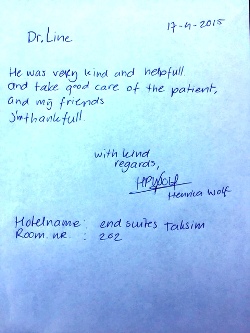 17-4-2015
Dr. Line
He was very kind and helpfull.
and take good care of the patient,
and my friends
I'm thankfull.
with kind
regards,
Henrica Wolf
Hotelname: end suites Taksim
Room nr. : 202